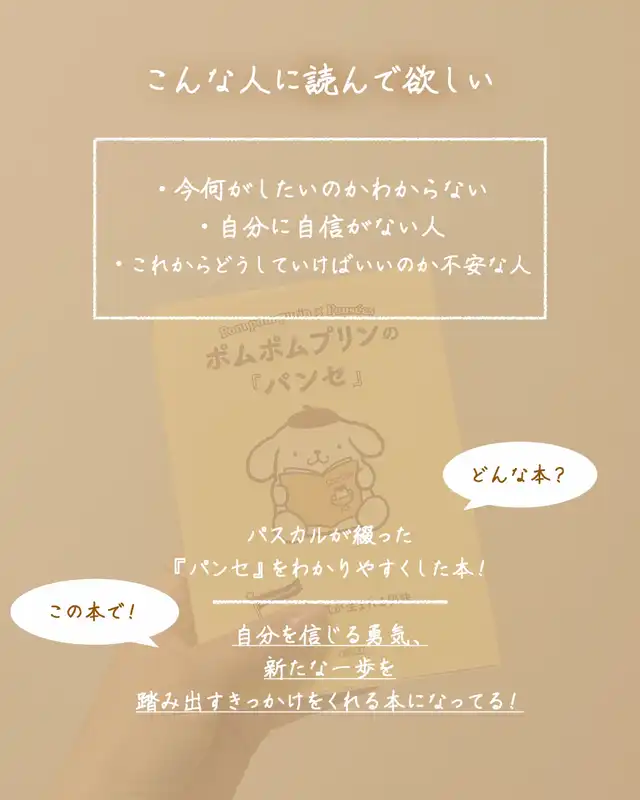 こんな人に読んで欲しい
・今何がしたいのかわからない
・自分に自信がない人
・これからどうしていけばいいのか不安な人
ポムポムプリンの
『パンセ』
どんな本？
パスカルが綴った
『パンセ』をわかりやすくした本！
この本で！
自分を信じる勇気、
新たな一歩を
踏み出すきっかけをくれる本になってる！